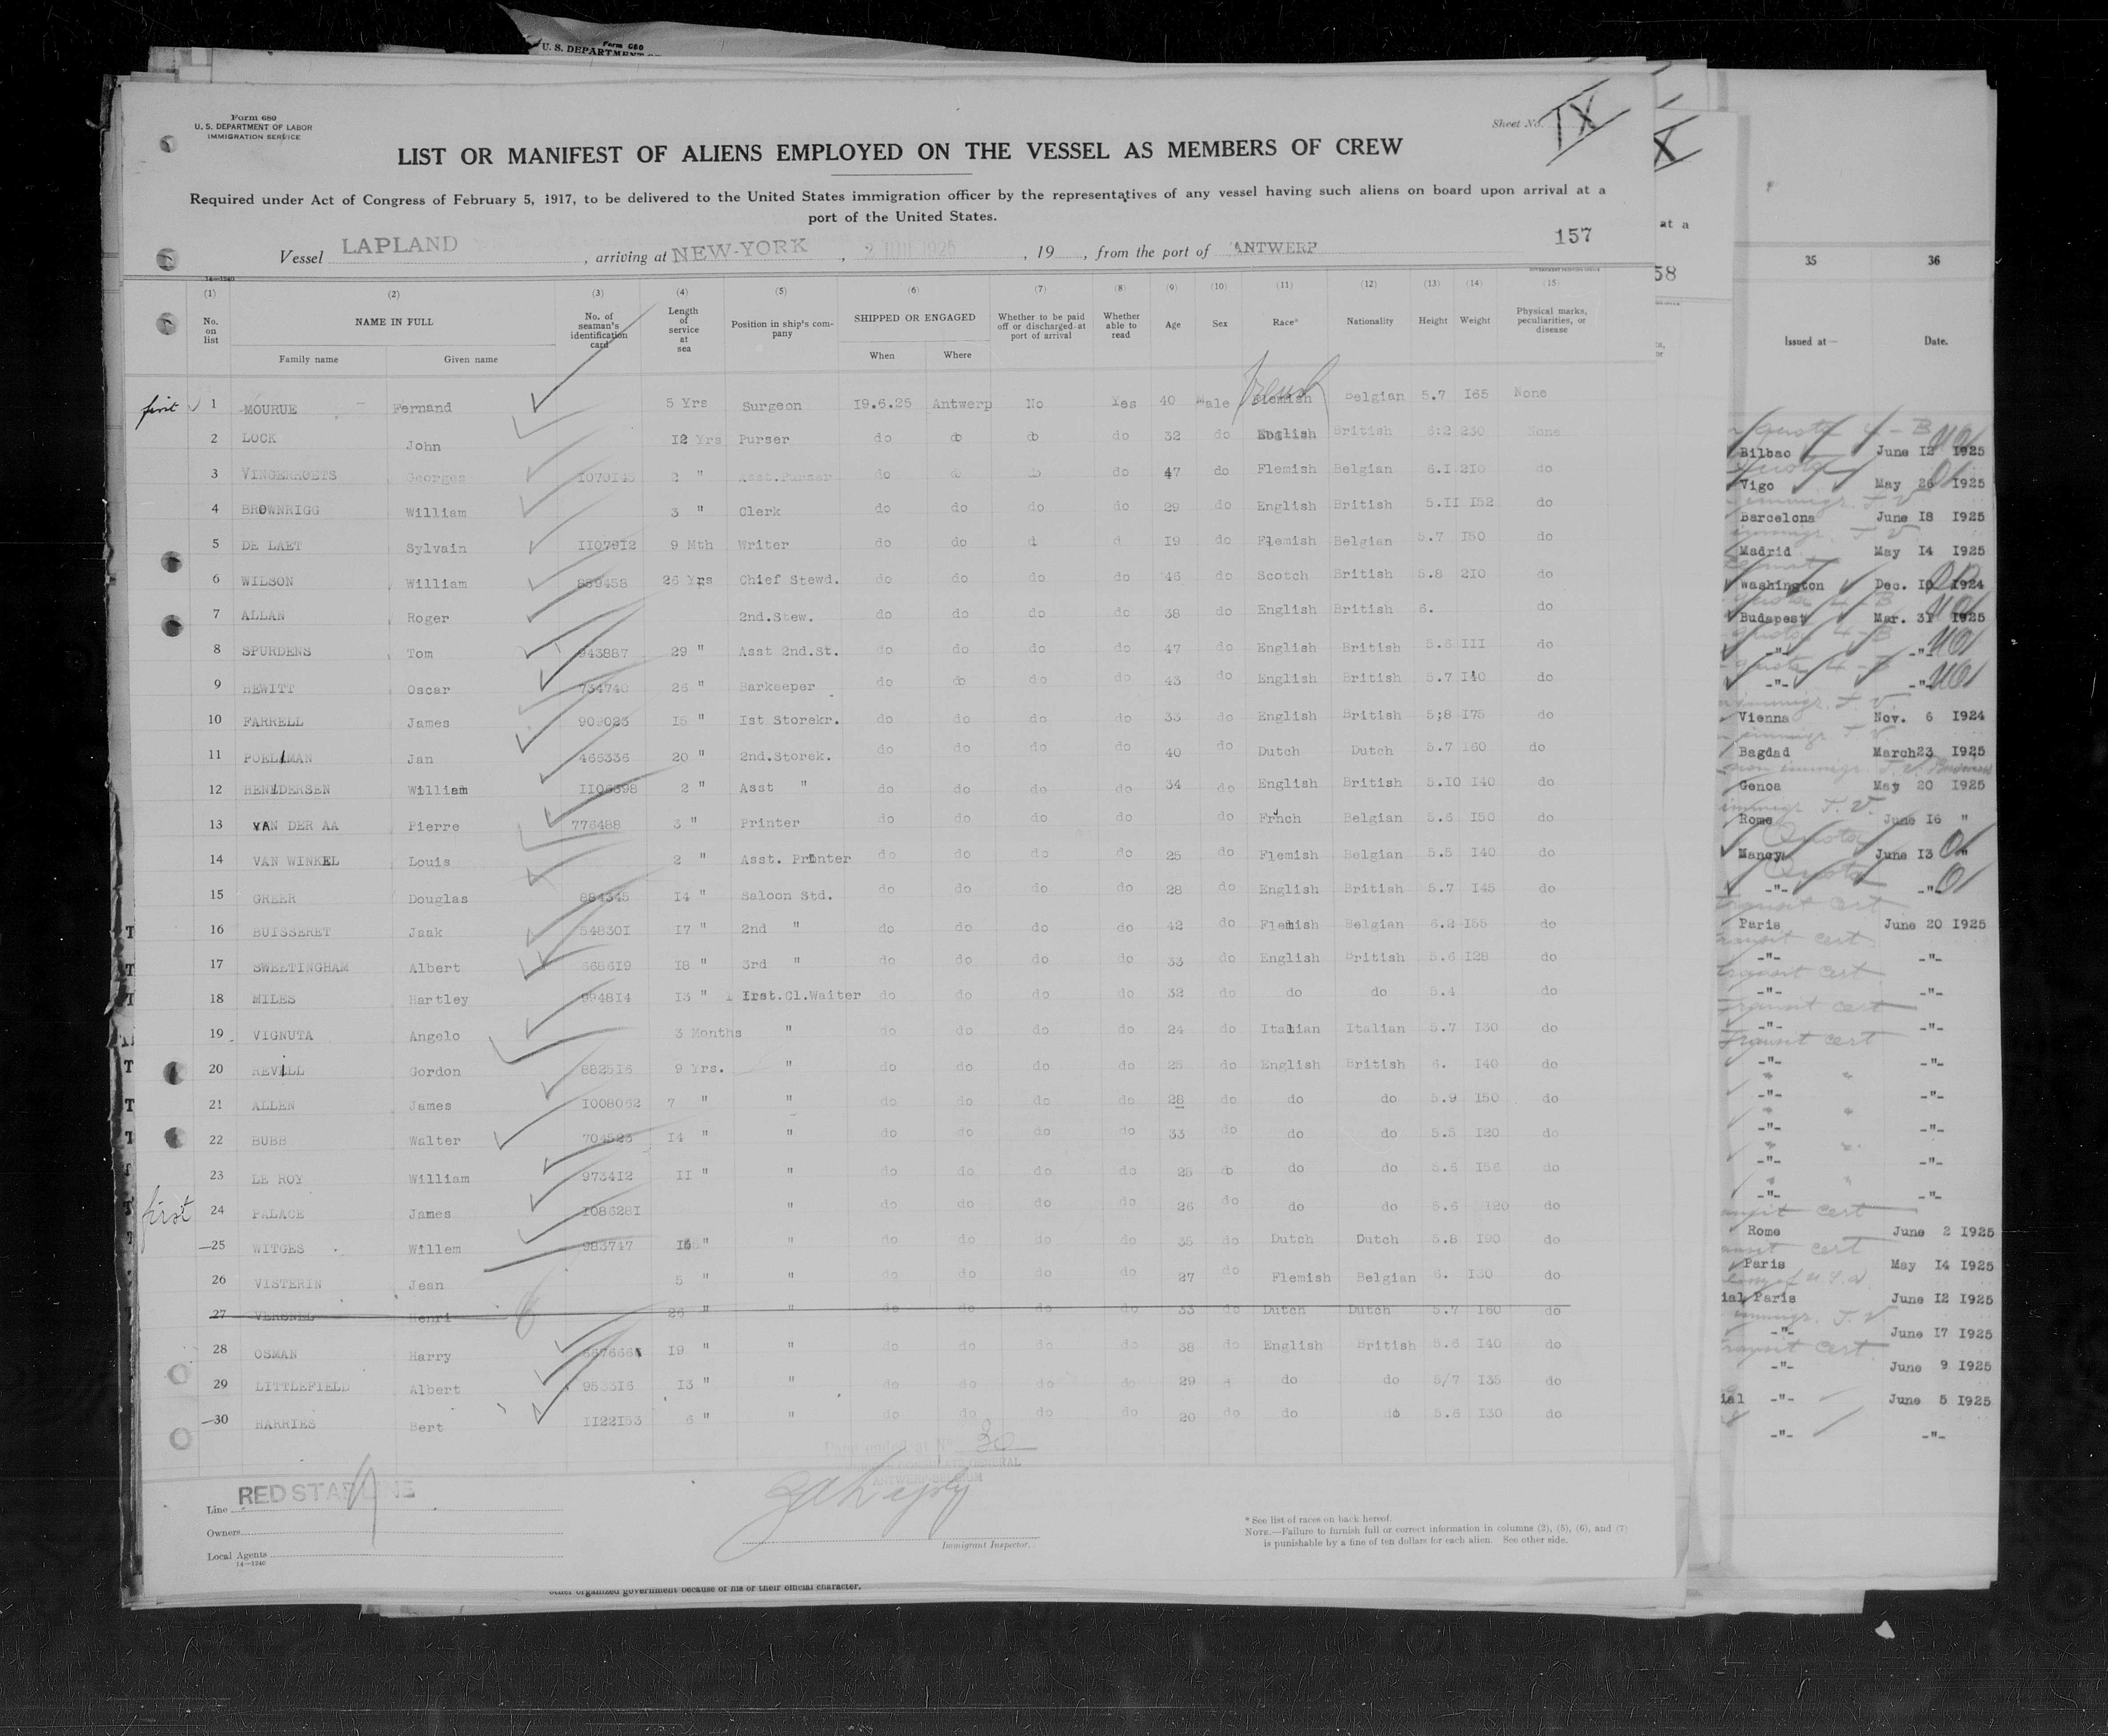 Form 680
U. S. DEPARTMENT
Form 680
U. S. DEPARTMENT OF LABOR
IMMIGRATION SERVICE
Sheet No. IX
LIST OR MANIFEST OF ALIENS EMPLOYED ON THE VESSEL AS MEMBERS OF CREW
Required under Act of Congress of February 5, 1917, to be delivered to the United States immigration officer by the representatives of any vessel having such aliens on board upon arrival at a
port of the United States.
157
Vessel LAPLAND, arriving at NEW-YORK, 1925, 19, from the port of ANTWERP
14-1240
(1) (2) (3) (4) (5) (6) (7) (8) (9) (10) (11) (12) (13) (14) (15)
No. on list NAME IN FULL No. of seaman's identification card Length of service at sea Position in ship's company SHIPPED OR ENGAGED Whether to be paid off or discharged at port of arrival Whether able to read Age Sex Race* Nationality Height Weight Physical marks, peculiarities, or disease
Family name Given name When Where
first 1 MOURUE Fernand 5 Yrs Surgeon 19.6.25 Antwerp No Yes 40 Male French Belgian 5.7 165 None
2 LOCK John 12 Yrs Purser do do do do 32 do English British 6:2 230 None
3 VINGERHOETS Georges 1070145 2 " Asst.Purser do do do do 47 do Flemish Belgian 6.1 210 do
4 BROWNRIGG William 3 " Clerk do do do do 29 do English British 5.11 152 do
5 DE LAET Sylvain 1107912 9 Mth Writer do do d d 19 do Flemish Belgian 5.7 150 do
6 WILSON William 889458 26 Yrs Chief Stewd. do do do do 46 do Scotch British 5.8 210 do
7 ALLAN Roger 2nd.Stew. do do do do 38 do English British 6. do
8 SPURDENS Tom 943887 29 " Asst 2nd.St. do do do do 47 do English British 5.6 111 do
9 HEWITT Oscar 734740 26 " Barkeeper do do do do 43 do English British 5.7 140 do
10 FARRELL James 909023 15 " Ist Storekr. do do do do 33 do English British 5;8 175 do
11 POELMAN Jan 466336 20 " 2nd.Storek. do do do do 40 do Dutch Dutch 5.7 160 do
12 HENDERSEN William 1106398 2 " Asst " do do do do 34 do English British 5.10 140 do
13 VAN DER AA Pierre 776488 3 " Printer do do do do do Frnch Belgian 5.6 150 do
14 VAN WINKEL Louis 2 " Asst. Printer do do do do 25 do Flemish Belgian 5.5 140 do
15 GREER Douglas 884345 14 " Saloon Std. do do do do 28 do English British 5.7 145 do
16 BUISSERET Jaak 548301 17 " 2nd " do do do do 42 do Flemish Belgian 6.2 155 do
17 SWEETINGHAM Albert 668619 18 " 3rd " do do do do 33 do English British 5.6 128 do
18 MILES Hartley 994814 13 " Irst.Cl.Waiter do do do do 32 do do do 5.4 do
19 VIGNUTA Angelo 3 Months " do do do do 24 do Italian Italian 5.7 130 do
20 REVILL Gordon 882516 9 Yrs. " do do do do 25 do English British 6. 140 do
21 ALLEN James 1008062 7 " " do do do do 28 do do do 5.9 150 do
22 BUBB Walter 704523 14 " " do do do do 33 do do do 5.5 120 do
23 LE ROY William 973412 11 " " do do do do 26 do do do 5.6 156 do
first 24 PALACE James 1086281 " do do do do 26 do do do 5.6 120 do
25 WITGES Willem 983747 16 " " do do do do 35 do Dutch Dutch 5.8 190 do
26 VISTERIN Jean 5 " " do do do do 27 do Flemish Belgian 6. 130 do
27 VERSNEL Henri 26 " " do do do do 33 do Dutch Dutch 5.7 160 do
28 OSMAN Harry 19 " " do do do do 38 do English British 5.6 140 do
29 LITTLEFIELD Albert 953316 13 " " do do do do 29 d do do 5/7 135 do
30 HARRIES Bert 1122153 6 " " do do do do 20 do do do 5.6 130 do
30
Line RED STAR LINE
Owners
Local Agents
14-1240
Immigrant Inspector.
* See list of races on back hereof.
NOTE.—Failure to furnish full or correct information in columns (2), (5), (6), and (7)
is punishable by a fine of ten dollars for each alien. See other side.
other organized government because of his or their official character.
X
at a
58
35 36
Issued at— Date.
Bilbao June 12 1925
Vigo May 26 1925
Barcelona June 18 1925
Madrid May 14 1925
Washington Dec. 10 1924
Budapest Mar. 31 1925
-"- -"-
-"- -"-
Vienna Nov. 6 1924
Bagdad March23 1925
Genoa May 20 1925
Rome June 16 "
Nancy June 13 "
-"- -"-
Paris June 20 1925
-"- -"-
-"- -"-
-"- -"-
-"- -"-
-"- -"-
-"- -"-
-"- -"-
-"- -"-
Rome June 2 1925
Paris May 14 1925
ial Paris June 12 1925
-"- June 17 1925
-"- June 9 1925
ial -"- June 5 1925
-"- -"-